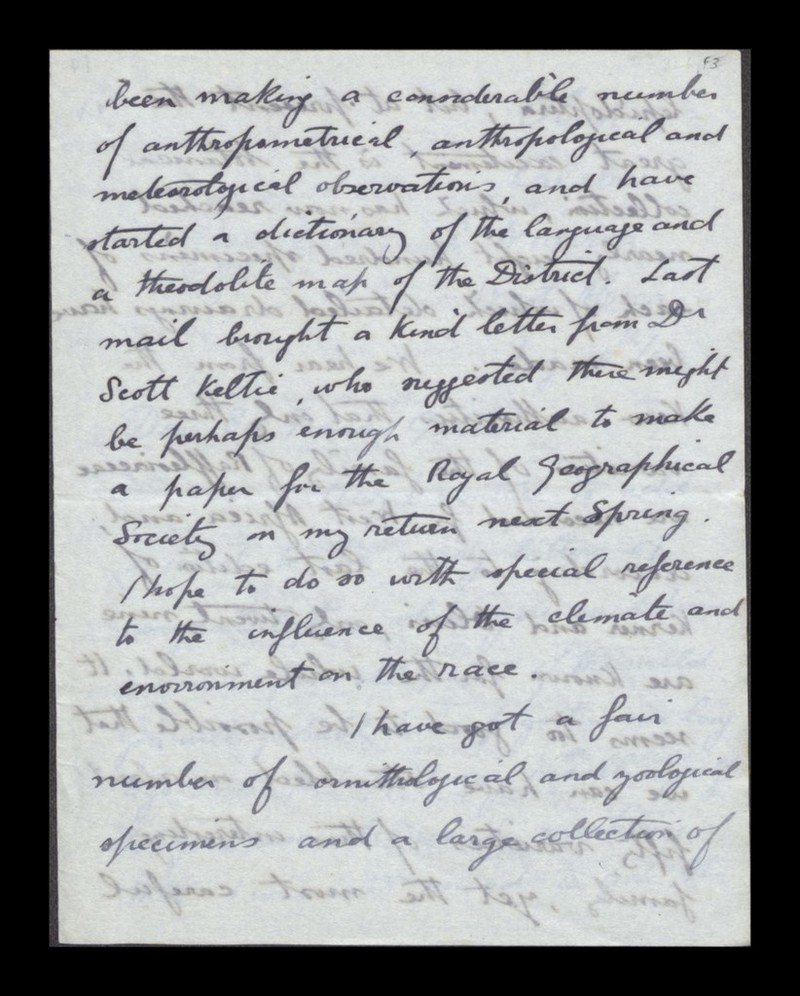 93
been making a considerable number
of anthropometrical, anthropological and
meteorological observations, and have
started a dictionary of the language and
a theodolite map of the District. Last
mail brought a kind letter from Dr
Scott Keltie, who suggested there might
be perhaps enough material to make
a paper for the Royal Geographical
Society on my return next Spring.
I hope to do so with special reference
to the influence of the climate and
environment on the race.
I have got a fair
number of ornithological and zoological
specimens and a large collection of